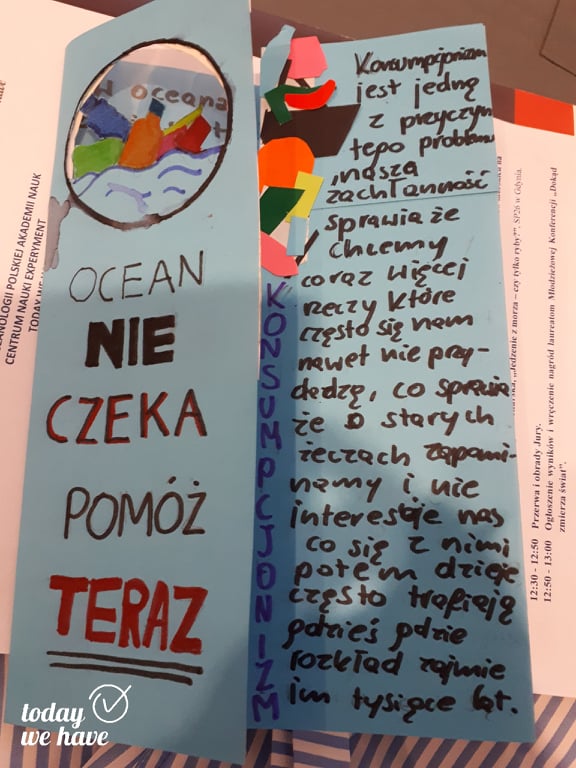 oceana
OCEAN
NIE
CZEKA
POMÓŻ
TERAZ
KONSUMPCJONIZM
Konsumpcjonizm
jest jedną
z przyczyn
tego problemu
nasza
zachłanność
sprawia że
chcemy
coraz więcej
rzeczy które
często się nam
nawet nie przy-
dadzą, co sprawia
że o starych
żeczach zapomi-
namy i nie
interesuje nas
co się z nimi
potem dzieje
często trafiają
gdzieś gdzie
rozkład zajmie
im tysiące lat.
OLOGII POLSKIEJ AKADEMII NAUK
CENTRUM NAUKI EXPERYMENT
TODAY WE
„Jedzenie z morza – czy tylko ryby?”, SP26 w Gdyni.
12:30 - 12:50 Przerwa i obrady Jury.
12:50 - 13:00 Ogłoszenie wyników i wręczenie nagród laureatom Młodzieżowej Konferencji „Dokąd
zmierza świat”.
today
we have